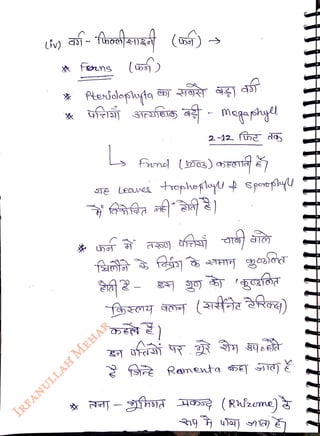 (iv) वर्ग - फिल्लीसाइनी (फर्न) →
* Ferns (फर्न)
* Pteridophyta का सबसे बड़ा वर्ग
* पत्तियाँ अत्यधिक बड़ी - Megaphyll
2-12 फिट तक
↳ Frond ( ) कहलाती हैं।
यह Leaves trophophyll & sporophyll
में विभेदित नहीं होती हैं।
* फर्न में तरूण पत्तियाँ चाबी वाले
खिलौने के स्प्रिंग के समान कुण्डलित
होती हैं - इस गुण को 'कुण्डलित
किसलय वलन (सर्सीनेट वर्नेशन)
कहते हैं।
इन पत्तियों पर भूरे रोम उपस्थित होते
हैं जिन्हे Ramenta कहा जाता हैं
* तना - भूमिगत प्रकन्द (Rhizome) के
रूप में पाया जाता हैं।
IRFANULLAH MEHAR